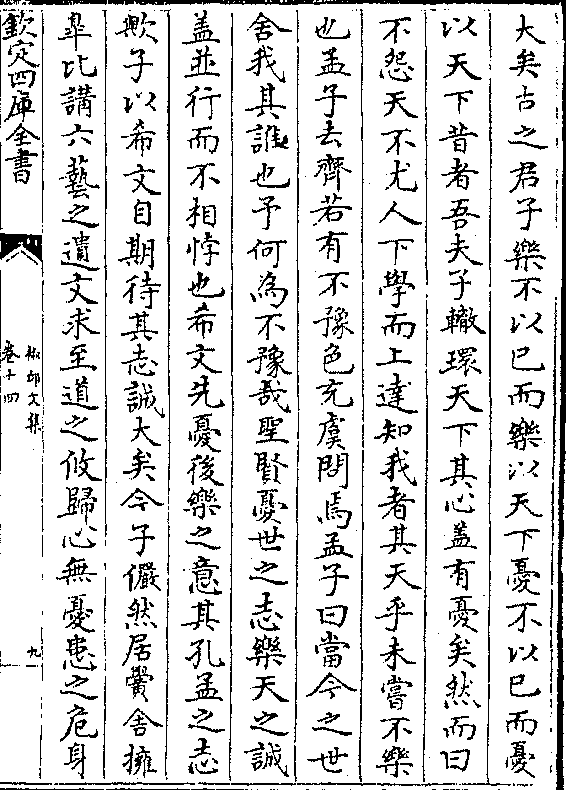 大矣古之君子樂不以已而樂以天下憂不以已而憂
以天下昔者吾夫子轍環天下其心盖有憂矣然而曰
不怨天不尤人下學而上達知我者其天乎未嘗不樂
也孟子去齊若有不豫色充虞問焉孟子曰當今之世
舍我其誰也予何為不豫哉聖賢憂世之志樂天之誠
盖並行而不相悖也希文先憂後樂之意其孔孟之志
歟子以希文自期待其志誠大矣今子儼然居黌舍擁
臯比講六藝之遺文求至道之攸歸心無憂患之危身
欽定四庫全書
椒邱文集
卷十四
九